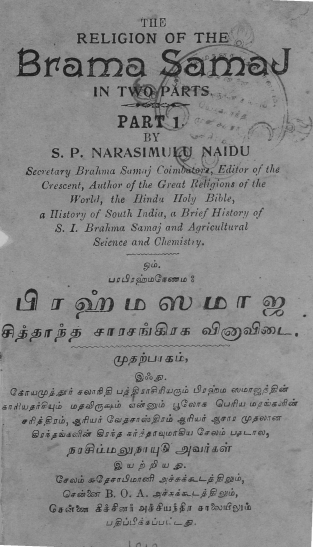 THE
RELIGION OF THE
Brama Samaj
IN TWO PARTS.
PART 1.
BY
S. P. NARASIMULU NAIDU
Secretary Brahma Samaj Coimbatore, Editor of the
Crescent, Author of the Great Religions of the
World, the Hindu Holy Bible,
a History of South India, a Brief History of
S. I. Brahma Samaj and Agricultural
Science and Chemistry.
ஓம்.
பரப்ரஹ்மணேநம:
பிரஹ்மஸமாஜ
சித்தாந்த சாரசங்கிரக வினாவிடை.
முதற்பாகம்,
இஃது.
கோயமுத்தூர் கலாநிதி பத்திராசிரியரும் பிரஹ்ம ஸமாஜத்தின்
காரியதரிசியும் மதவிருக்ஷம் என்னும் பூலோக பெரிய மதங்களின்
சரித்திரம், ஆரியர் வேதசாஸ்திரம் ஆரியர் ஆசார முதலான
கிரந்தங்களின் கிரந்த கர்த்தாவுமாகிய சேலம் பகடால,
நரசிம்மலுநாயுடு அவர்கள்
இயற்றியது.
சேலம் சுதேசாபிமானி அச்சுக்கூடத்திலும்,
சென்னை B. O. A. அச்சுக்கூடத்திலும்,
சென்னை கிக்சினர் அச்சியந்திர சாலையிலும்
பதிப்பிக்கப்பட்டது.